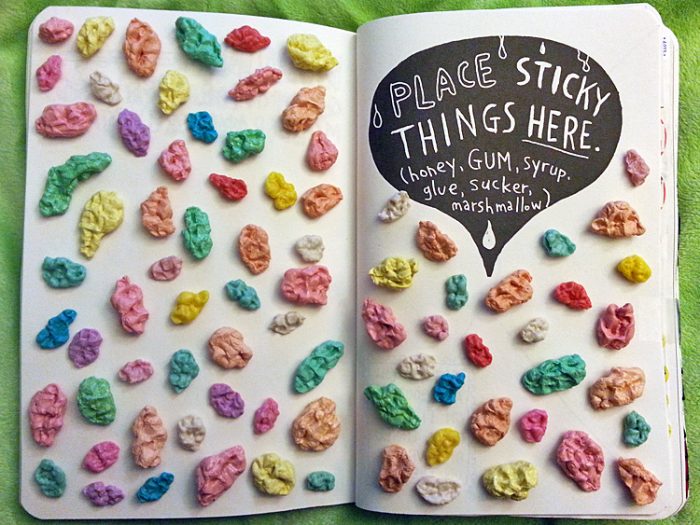 PLACE STICKY
THINGS HERE.
(honey, GUM, syrup.
glue, sucker,
marshmallow)